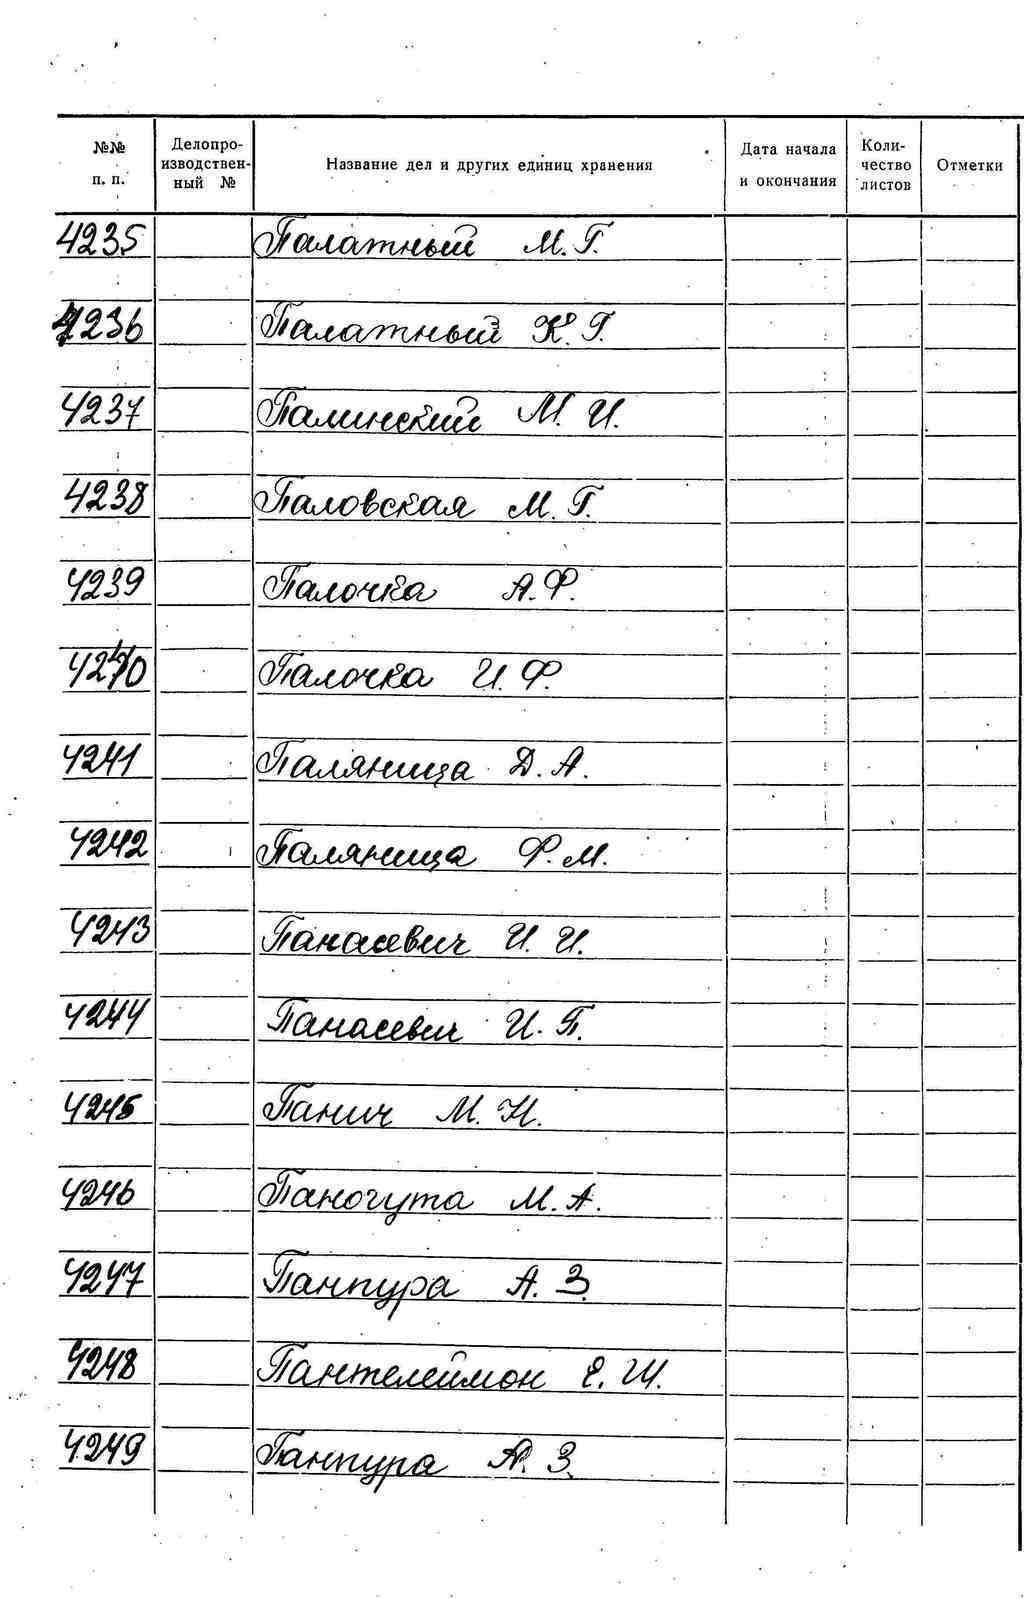 №№ п. п.
Делопро-
изводствен-
ный №
Название дел и других единиц хранения
Дата начала
и окончания
Коли-
чество
листов
Отметки
4235 Палатный М. Г.
4236 Палатный К. Г.
4237 Палинский М. И.
4238 Паловская М. Г.
4239 Палочка А. Ф.
4240 Палочка И. Ф.
4241 Паляница Д. А.
4242 Паляница Ф. М.
4243 Панасевич И. И.
4244 Панасевич И. П.
4245 Панич М. Н.
4246 Паногута М. А.
4247 Панпура А. З.
4248 Пантелеймон Е. Ш.
4249 Панпура З.